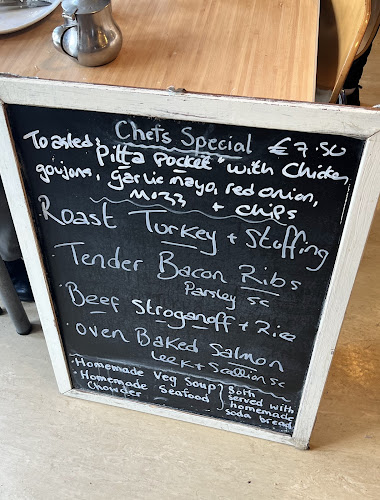 Chefs Special € 7.50
Toasted "Pitta Pocket" with Chicken,
goujons, garlic mayo, red onion,
Mozz + chips
Roast Turkey + Stuffing
Tender Bacon Ribs
Parsley sc
Beef Stroganoff + Rice
oven Baked Salmon
Leek + Scallion sc
· Homemade Veg Soup } Both
· Homemade Seafood served with
Chowder homemade
soda bread